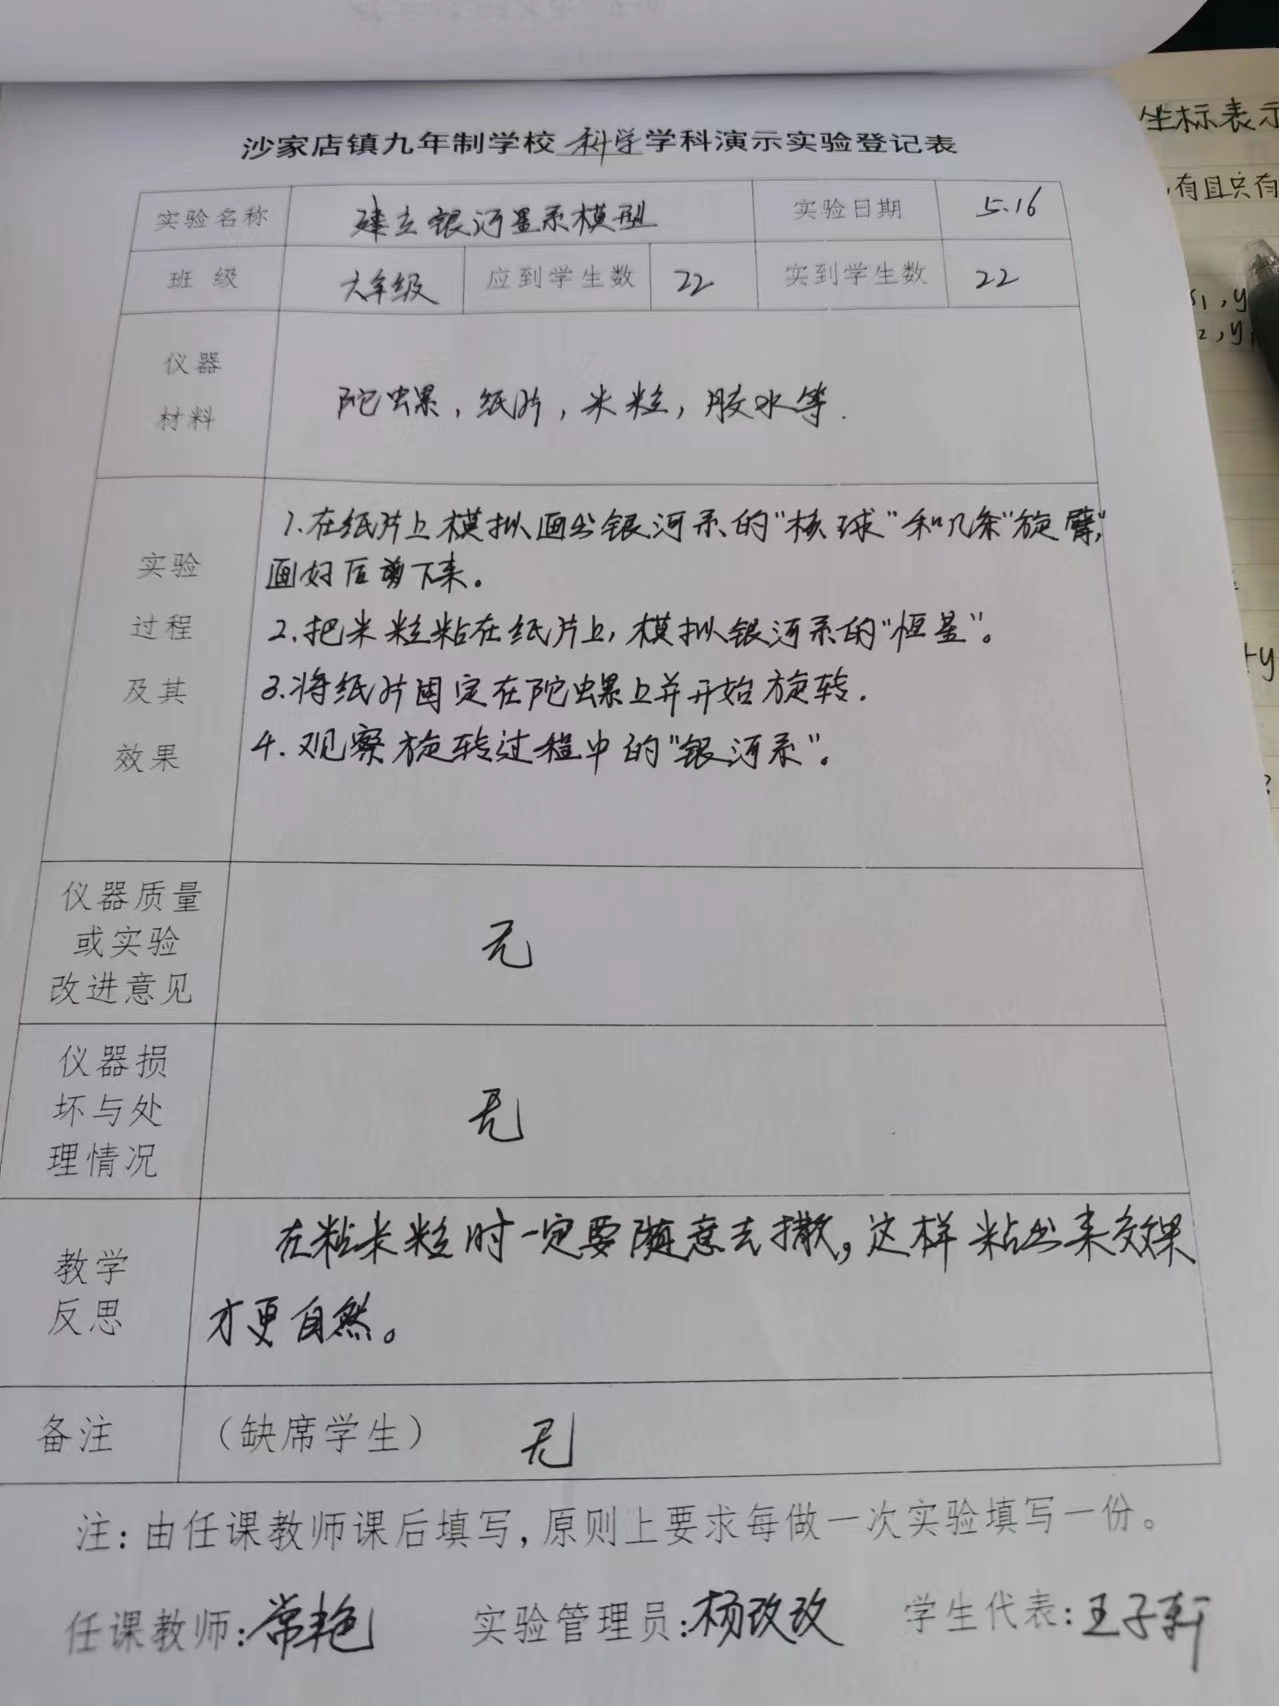 沙家店镇九年制学校 科学 学科演示实验登记表
实验名称 建立银河星系模型 实验日期 5.16
班 级 六年级 应到学生数 22 实到学生数 22
仪器
材料
陀螺，纸片，米粒，胶水等.
实验
过程
及其
效果
1.在纸片上模拟画出银河系的"核球"和几条"旋臂",
画好后剪下来。
2.把米粒粘在纸片上,模拟银河系的"恒星"。
3.将纸片固定在陀螺上并开始旋转.
4.观察旋转过程中的"银河系"。
仪器质量
或实验
改进意见
无
仪器损
坏与处
理情况
无
教学
反思
在粘米粒时一定要随意去撒,这样粘出来效果
才更自然。
备注 （缺席学生） 无
注：由任课教师课后填写，原则上要求每做一次实验填写一份。
任课教师:常艳 实验管理员:杨改改 学生代表:王子轩
坐标表示
,有且只有